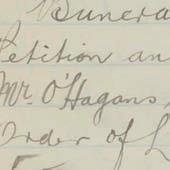 Funera
Petition an
Mr. O'Hagans,
Order of L